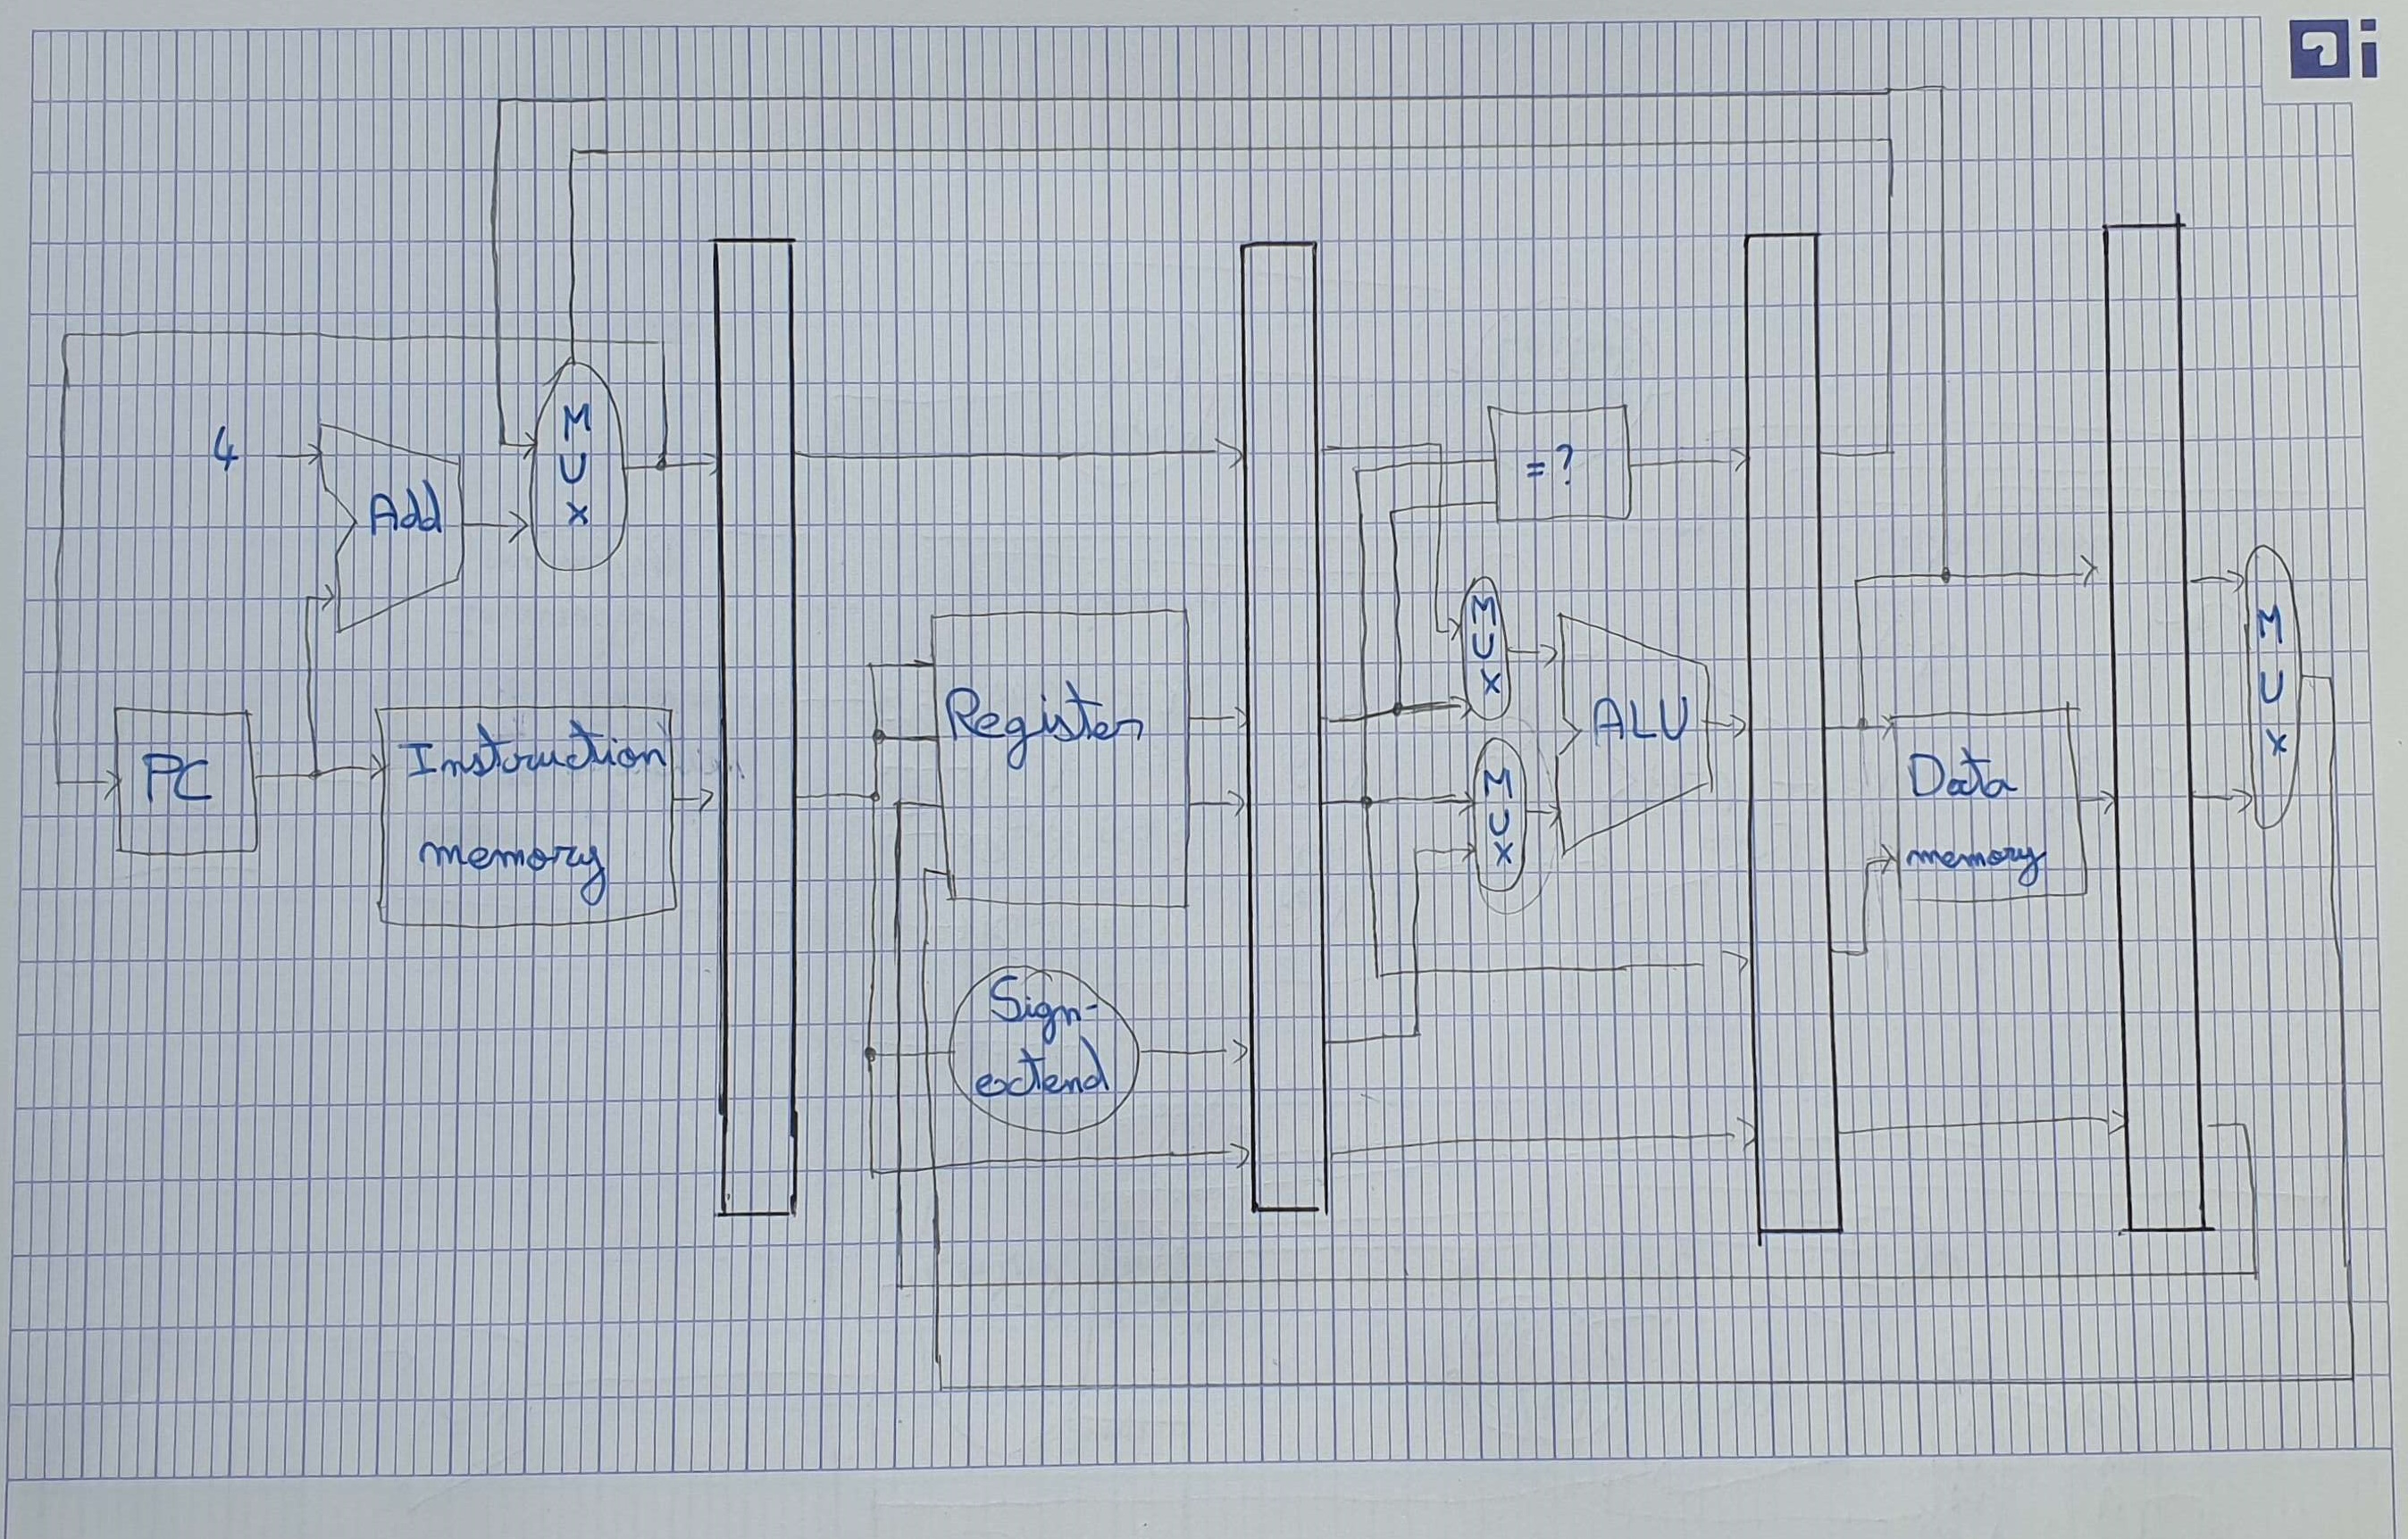 4
Add
M
U
X
= ?
PC
Instruction
memory
Register
Sign-
extend
M
U
X
M
U
X
ALU
Data
memory
M
U
X